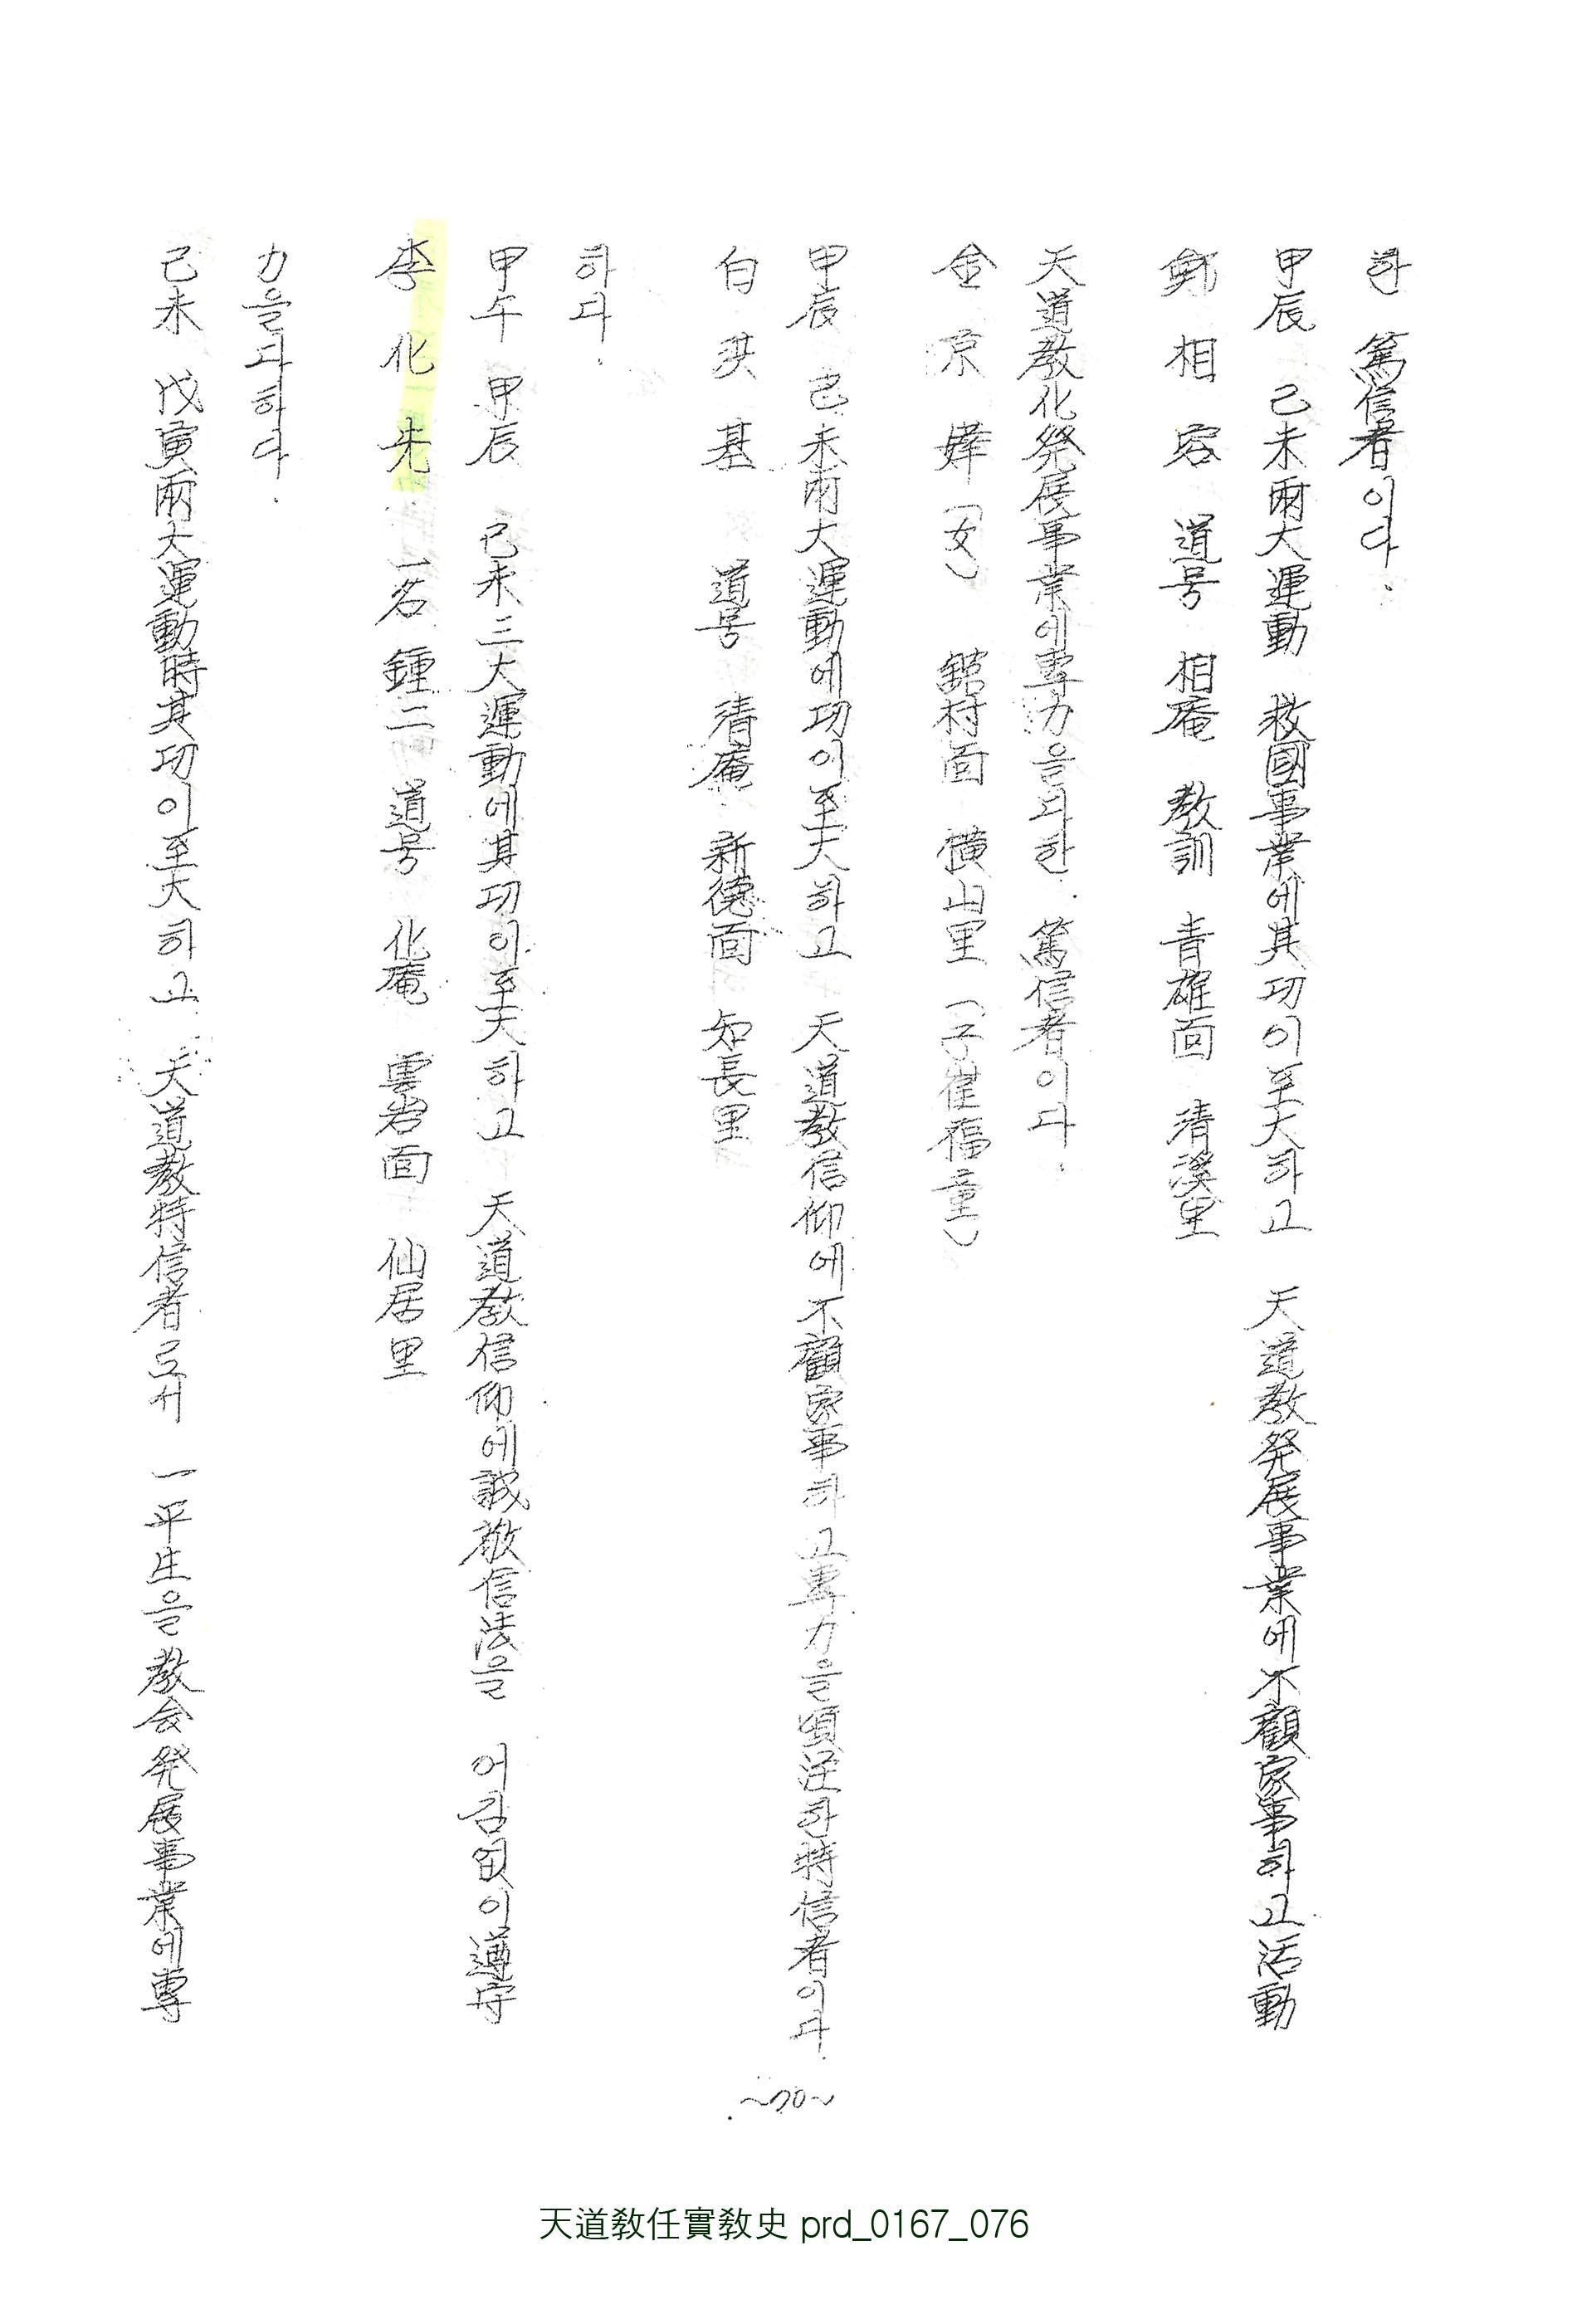 한 篤信者이다.
甲辰 己未兩大運動 救國事業에其功이至大하고 天道敎発展事業에不顧家事하고活動
鄭相容 道号 相庵 敎訓 青雄面 清溪里
天道敎化発展事業에專力을다한. 篤信者이다.
金京嬅(女) 舘村面 橫山里 (子崔福童)
甲辰 己未兩大運動에功이至大하고 天道敎信仰에不顧家事하고專力을傾注한特信者이다.
白淇基 道号 清庵 新德面 知長里
하다.
甲午 甲辰 己未三大運動에其功이至大하고 天道敎信仰에誠敬信法을 어김없이遵守
李化先 一名 鍾二 道号 化庵 雲岩面 仙居里
力을다하다.
己未 戊寅兩大運動時其功이至大하고 天道敎特信者로서 一平生을敎会発展事業에專
~70~
天道敎任實敎史 prd_0167_076